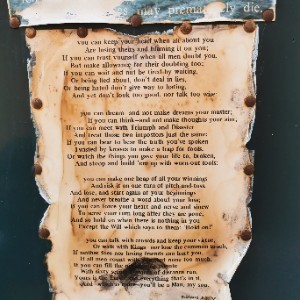 may prematurely die.
you can keep your head when all about you
Are losing theirs and blaming it on you;
If you can trust yourself when all men doubt you,
But make allowance for their doubting too;
If you can wait and not be tired by waiting,
Or being lied about, don't deal in lies,
Or being hated don't give way to hating,
And yet don't look too good, nor talk too wise
you can dream and not make dreams your master;
If you can think—and not make thoughts your aim,
If you can meet with Triumph and Disaster
And treat those two impostors just the same:
If you can bear to hear the truth you've spoken
Twisted by knaves to make a trap for fools,
Or watch the things you gave your life to, broken,
And stoop and build 'em up with worn-out tools:
you can make one heap of all your winnings
And risk it on one turn of pitch-and-toss,
And lose, and start again at your beginnings
And never breathe a word about your loss;
If you can force your heart and nerve and sinew
To serve your turn long after they are gone,
And so hold on when there is nothing in you
Except the Will which says to them: 'Hold on!'
you can talk with crowds and keep your virtue,
Or walk with Kings nor lose the common touch,
If neither foes nor loving friends can hurt you,
If all men count too much
you can fill the
With sixty distance run,
Yours is the Everything that's in it,
And you'll be a Man, my son.